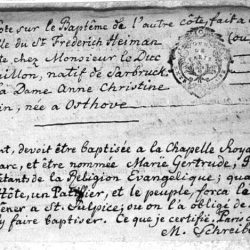 ote sur le Baptême de l'autre côte, fait a
lle du St Frederich Heiman
te chez Monsieur le Duc
uillon, natif de Sarbruck
la Dame Anne Christine
in, née a Osthove
nt, devoit être baptisée a la Chapelle Roya
arc, et être nommée Marie Gertrude,
itant de la Religion Evangelique; qua
Hôte, un Patissier, et le peuple, força le
ener a St. Sulpice, ou on l'a obligé de
y faire baptiser. Ce que je certifie. Paris
M. Schrei